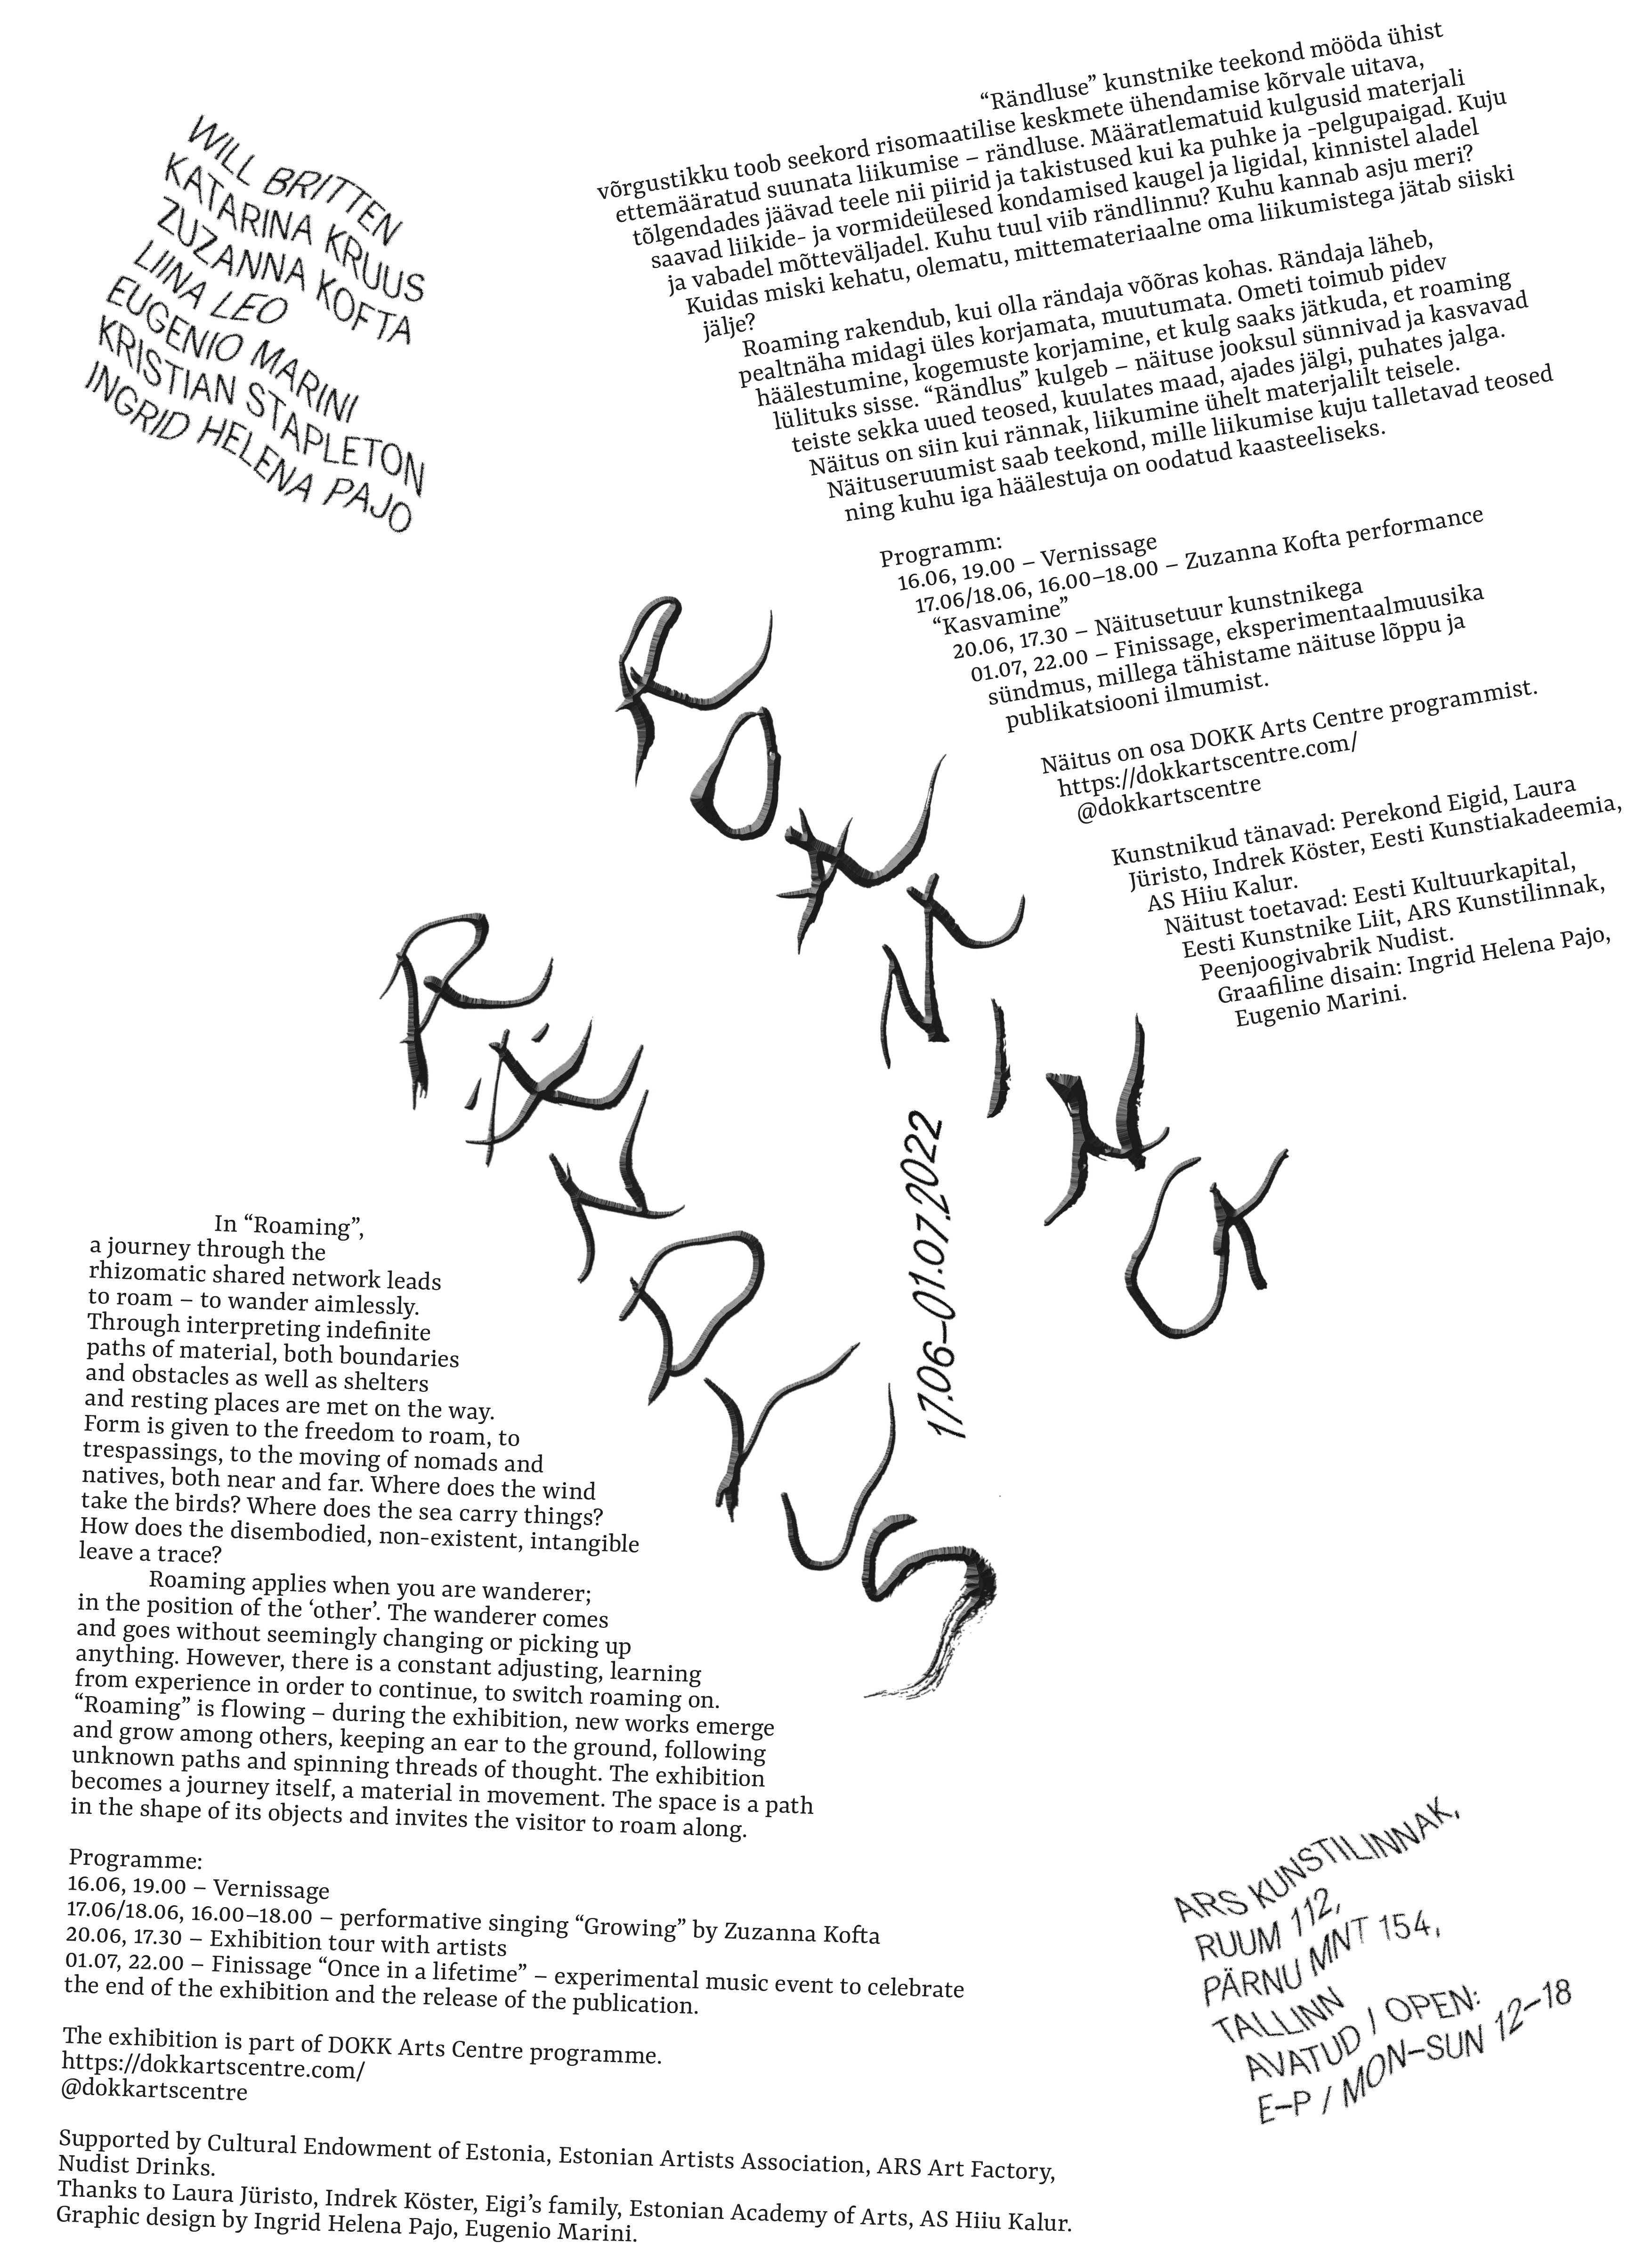 WILL BRITTEN
KATARINA KRUUS
ZUZANNA KOFTA
LIINA LEO
EUGENIO MARINI
KRISTIAN STAPLETON
INGRID HELENA PAJO
“Rändluse” kunstnike teekond mööda ühist
võrgustikku toob seekord risomaatilise keskmete ühendamise kõrvale uitava,
ettemääratud suunata liikumise – rändluse. Määratlematuid kulgusid materjali
tõlgendades jäävad teele nii piirid ja takistused kui ka puhke ja -pelgupaigad. Kuju
saavad liikide- ja vormideülesed kondamised kaugel ja ligidal, kinnistel aladel
ja vabadel mõtteväljadel. Kuhu tuul viib rändlinnu? Kuhu kannab asju meri?
Kuidas miski kehatu, olematu, mittemateriaalne oma liikumistega jätab siiski
jälje?
Roaming rakendub, kui olla rändaja võõras kohas. Rändaja läheb,
pealtnäha midagi üles korjamata, muutumata. Ometi toimub pidev
häälestumine, kogemuste korjamine, et kulg saaks jätkuda, et roaming
lülituks sisse. “Rändlus” kulgeb – näituse jooksul sünnivad ja kasvavad
teiste sekka uued teosed, kuulates maad, ajades jälgi, puhates jalga.
Näitus on siin kui rännak, liikumine ühelt materjalilt teisele.
Näituseruumist saab teekond, mille liikumise kuju talletavad teosed
ning kuhu iga häälestuja on oodatud kaasteeliseks.
Programm:
16.06, 19.00 – Vernissage
17.06/18.06, 16.00–18.00 – Zuzanna Kofta performance
“Kasvamine”
20.06, 17.30 – Näitusetuur kunstnikega
01.07, 22.00 – Finissage, eksperimentaalmuusika
sündmus, millega tähistame näituse lõppu ja
publikatsiooni ilmumist.
Näitus on osa DOKK Arts Centre programmist.
https://dokkartscentre.com/
@dokkartscentre
Kunstnikud tänavad: Perekond Eigid, Laura
Jüristo, Indrek Köster, Eesti Kunstiakadeemia,
AS Hiiu Kalur.
Näitust toetavad: Eesti Kultuurkapital,
Eesti Kunstnike Liit, ARS Kunstilinnak,
Peenjoogivabrik Nudist.
Graafiline disain: Ingrid Helena Pajo,
Eugenio Marini.
ROAMING
RÄNDLUS
17.06–01.07.2022
In “Roaming”,
a journey through the
rhizomatic shared network leads
to roam – to wander aimlessly.
Through interpreting indefinite
paths of material, both boundaries
and obstacles as well as shelters
and resting places are met on the way.
Form is given to the freedom to roam, to
trespassings, to the moving of nomads and
natives, both near and far. Where does the wind
take the birds? Where does the sea carry things?
How does the disembodied, non-existent, intangible
leave a trace?
Roaming applies when you are wanderer;
in the position of the ‘other’. The wanderer comes
and goes without seemingly changing or picking up
anything. However, there is a constant adjusting, learning
from experience in order to continue, to switch roaming on.
“Roaming” is flowing – during the exhibition, new works emerge
and grow among others, keeping an ear to the ground, following
unknown paths and spinning threads of thought. The exhibition
becomes a journey itself, a material in movement. The space is a path
in the shape of its objects and invites the visitor to roam along.
Programme:
16.06, 19.00 – Vernissage
17.06/18.06, 16.00–18.00 – performative singing “Growing” by Zuzanna Kofta
20.06, 17.30 – Exhibition tour with artists
01.07, 22.00 – Finissage “Once in a lifetime” – experimental music event to celebrate
the end of the exhibition and the release of the publication.
The exhibition is part of DOKK Arts Centre programme.
https://dokkartscentre.com/
@dokkartscentre
Supported by Cultural Endowment of Estonia, Estonian Artists Association, ARS Art Factory,
Nudist Drinks.
Thanks to Laura Jüristo, Indrek Köster, Eigi’s family, Estonian Academy of Arts, AS Hiiu Kalur.
Graphic design by Ingrid Helena Pajo, Eugenio Marini.
ARS KUNSTILINNAK,
RUUM 112,
PÄRNU MNT 154,
TALLINN
AVATUD / OPEN:
E–P / MON–SUN 12–18